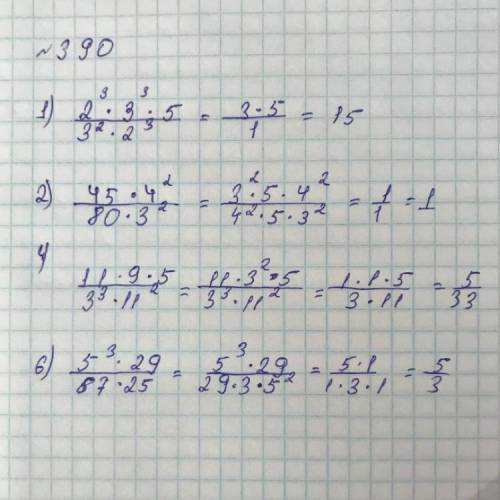 №390
1) \frac{2^3 \cdot 3^3 \cdot 5}{3^2 \cdot 2^3} = \frac{3 \cdot 5}{1} = 15
2) \frac{45 \cdot 4^2}{80 \cdot 3^2} = \frac{3^2 \cdot 5 \cdot 4^2}{4^2 \cdot 5 \cdot 3^2} = \frac{1}{1} = 1
4) \frac{11 \cdot 9 \cdot 5}{3^3 \cdot 11^2} = \frac{11 \cdot 3^2 \cdot 5}{3^3 \cdot 11^2} = \frac{1 \cdot 1 \cdot 5}{3 \cdot 11} = \frac{5}{33}
6) \frac{5^3 \cdot 29}{87 \cdot 25} = \frac{5^3 \cdot 29}{29 \cdot 3 \cdot 5^2} = \frac{5 \cdot 1}{1 \cdot 3 \cdot 1} = \frac{5}{3}